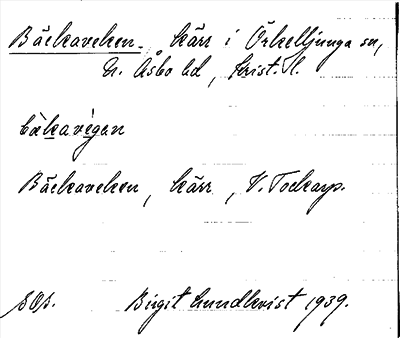 Bäckaveken. kärr i Örkelljunga sn,
N. Åsbo hd, Krist. l.
bäkavegan
Bäckaveken, kärr, V. Tockarp.
SOs. Birgit Lundkvist 1939.